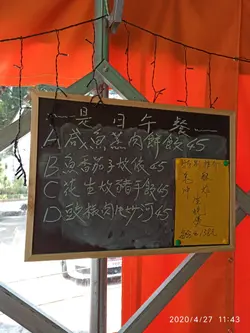 是日午餐
A咸魚蒸肉餅飯45
B魚香茄子炆飯45
C花生炆豬手飯45
D豉椒肉片炒河45
2020/4/27 11:43